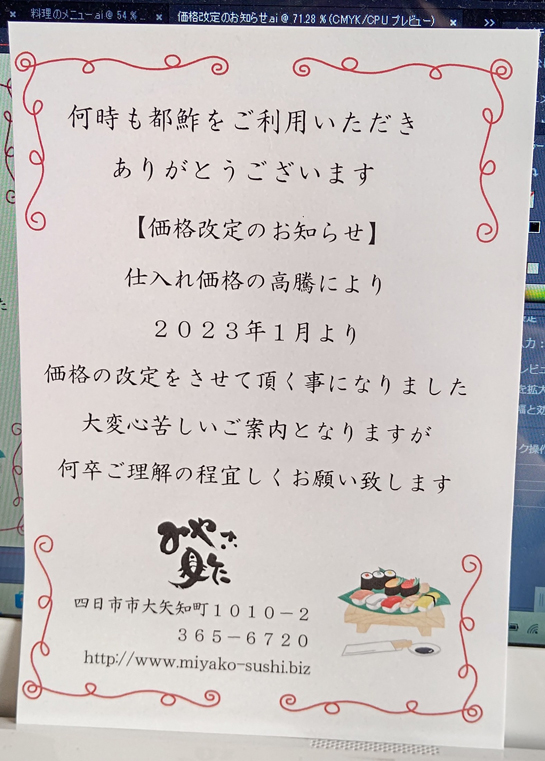 料理のメニュー.ai @ 54 %
価格改定のお知らせ.ai @ 71.28 % (CMYK/CPU プレビュー)
何時も都鮓をご利用いただき
ありがとうございます
【価格改定のお知らせ】
仕入れ価格の高騰により
２０２３年１月より
価格の改定をさせて頂く事になりました
大変心苦しいご案内となりますが
何卒ご理解の程宜しくお願い致します
みやこ
四日市市大矢知町１０１０－２
３６５－６７２０
http://www.miyako-sushi.biz